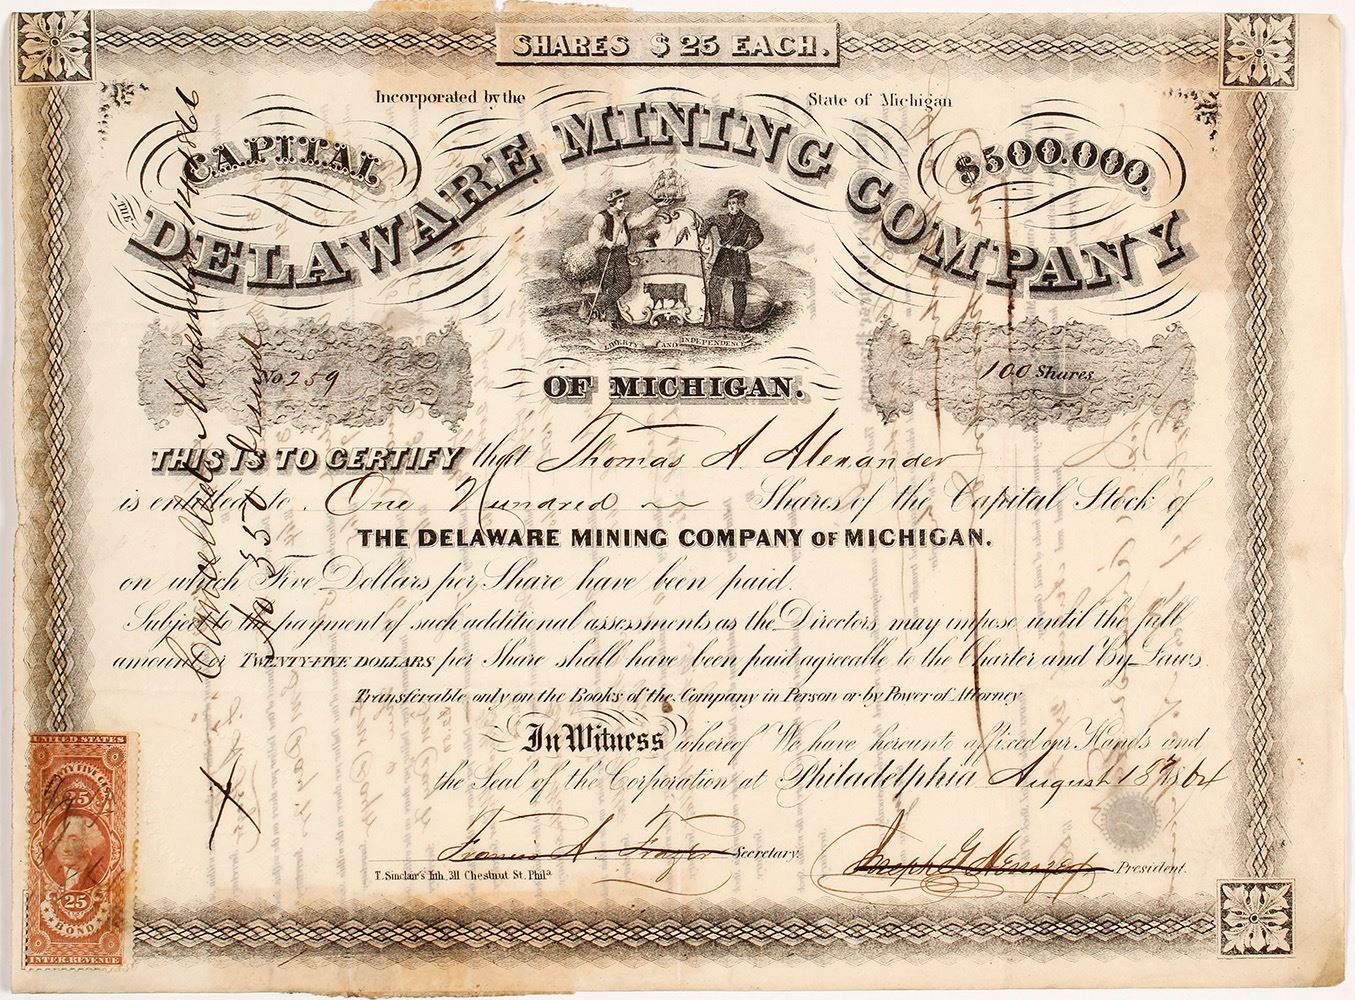 SHARES $25 EACH.
Incorporated by the State of Michigan
CAPITAL $500.000.
THE DELAWARE MINING COMPANY
LIBERTY AND INDEPENDENCE
OF MICHIGAN.
No. 259
100 Shares
THIS IS TO CERTIFY that Thomas A. Alexander
is entitled to One Hundred Shares of the Capital Stock of
THE DELAWARE MINING COMPANY OF MICHIGAN.
on which Five Dollars per Share have been paid.
Subject to the payment of such additional assessments as the Directors may impose until the full
amount of TWENTY-FIVE DOLLARS per Share shall have been paid agreeable to the Charter and By-Laws.
Transferable only on the Books of the Company in Person or by Power of Attorney
In Witness whereof We have hereunto affixed our Hands and
the Seal of the Corporation at Philadelphia August 18th 1864
Francis A. Secretary.
Joseph G. President.
T. Sinclair's lith. 311 Chestnut St. Phila.
Cancelled November 1866
No 350 Issued
UNITED STATES
25
25
BOND
INTER. REVENUE